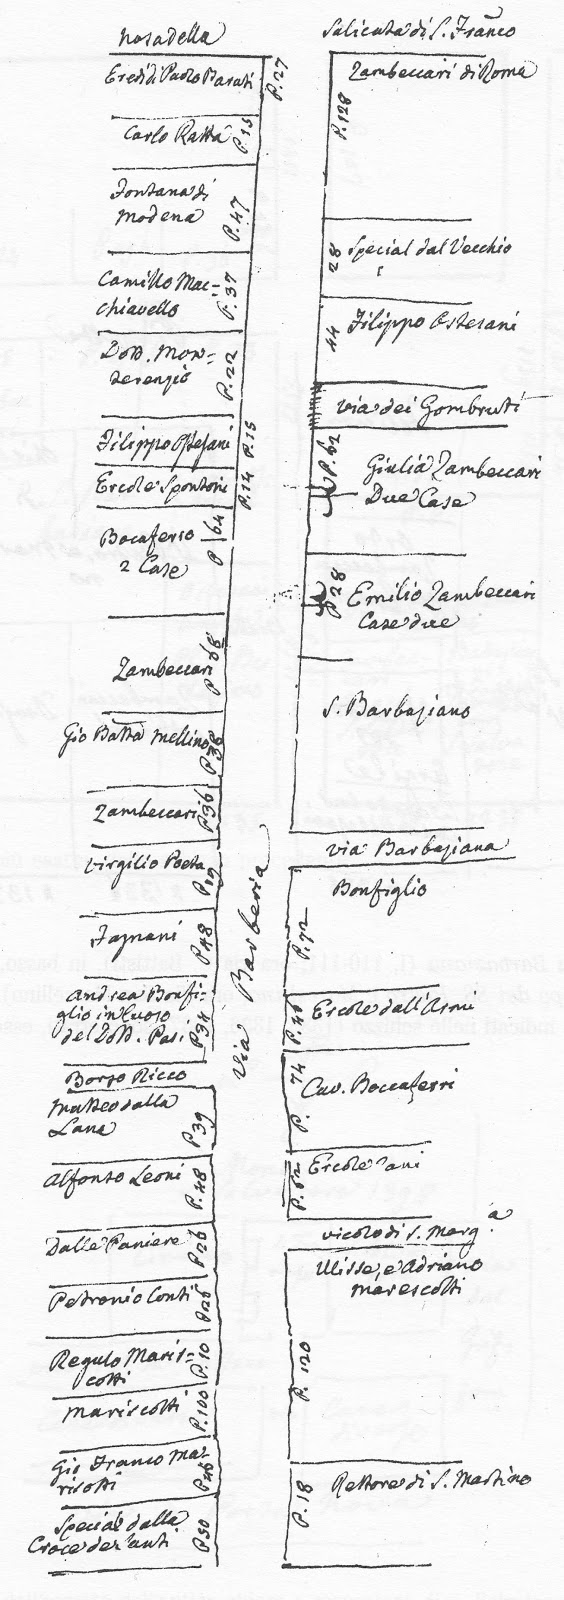 Nosadella
Eredi di Paolo Barati
P. 27
Carlo Ratta
P. 15
Fontana di
Modena
P. 47
Camillo Mac-
chiavello
P. 37
Dott. Mon=
terenzio
P. 22
Filippo Ostesani
P. 15
Ercole Spontoni
P. 14
Bocaferro
2 Case
P 64
Zambeccari
P 68
Gio Batta Mellino
P. 38
Zambeccari
P. 36
Virgilio Poeta
P. 19
Fagnani
P. 48
Andrea Bonfi-
glio in luoco
del Dott. Pasi
P. 34
Borgo Ricco
Matteo dalla
Lana
P. 39
Alfonso Leoni
P. 48
Dalle Paniere
P. 26
Petronio Conti
P. 26
Regulo Maris=
cotti
P. 10
Mariscotti
P. 100
Gio Franco Ma-
riscotti
P. 46
Special dalla
Croce
P. 30
Via Barberia
Salicata di S. Franco
Zambeccari di Roma
P. 128
Special dal Vecchio
28
Filippo Ostesani
44
via dei Gombruti
P. 62
Giulia Zambeccari
Due Case
P 28
Emilio Zambeccari
Case due
S. Barbaziano
via Barbaziana
Bonfiglio
P. 72
Ercole dall'Armi
P. 40
Cav. Boccaferri
P. 74
Ercole
P. 62
vicolo di S. Marga
Ulisse, e Adriano
Marescotti
P. 120
Rettore di S. Martino
P. 18